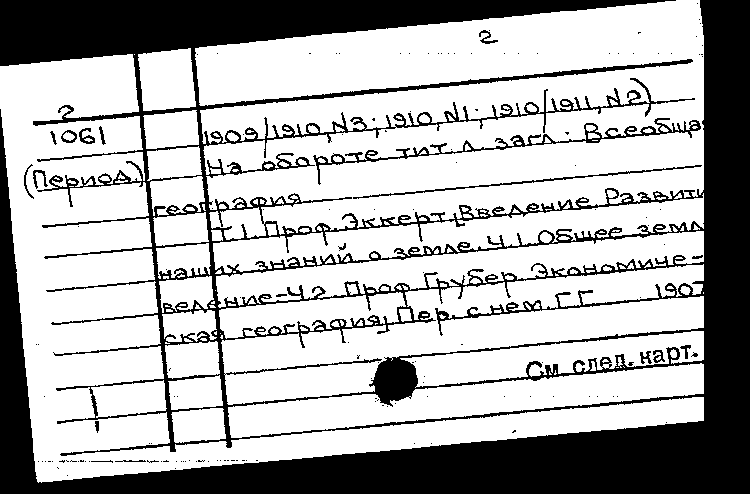 2
2
1061
(Период.)
1909/1910, N3; 1910, N1; 1910/1911, N2)
На обороте тит. л. загл.: Всеобща
география
Т.1. Проф. Эккерт, [Введение. Развити
наших знаний о земле. Ч.1. Общее земл
ведение=Ч2 Проф Грубер. Экономиче=
ская география] Пер. с нем. Г.Г. 1907
См. след. карт.